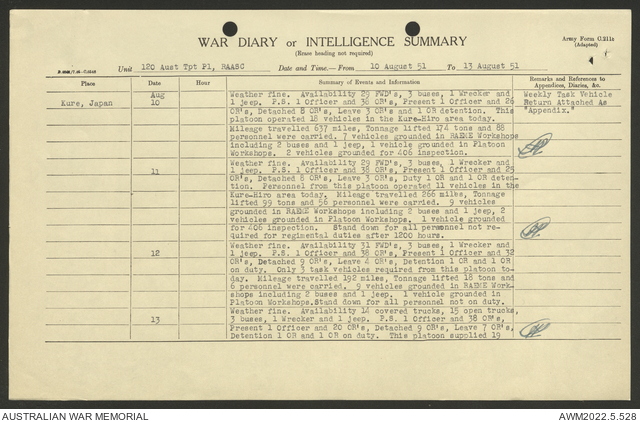 WAR DIARY or INTELLIGENCE SUMMARY
(Erase heading not required)
Army Form C.2118
(Adapted)
Unit 120 Aust Tpt Pl, RAASC Date and Time.—From 10 August 51 To 13 August 51
Place Date Hour Summary of Events and Information Remarks and References to Appendices, Diaries, &c.
Kure, Japan
Aug
10
Weather fine. Availability 29 FWD's, 3 buses, 1 Wrecker and
1 jeep. P.S. 1 Officer and 38 OR's, Present 1 Officer and 26
OR's, Detached 8 OR's, Leave 3 OR's and 1 OR detention. This
platoon operated 18 vehicles in the Kure-Hiro area today.
Mileage travelled 637 miles, Tonnage lifted 174 tons and 88
personnel were carried. 7 vehicles grounded in RAEME Workshops
including 2 buses and 1 jeep, 1 vehicle grounded in Platoon
Workshops. 2 vehicles grounded for 406 inspection.
Weekly Task Vehicle
Return Attached As
"Appendix."
11
Weather fine. Availability 29 FWD's, 3 buses, 1 Wrecker and
1 jeep. P.S. 1 Officer and 38 OR's, Present 1 Officer and 25
OR's, Detached 8 OR's, Leave 3 OR's, Duty 1 OR and 1 OR deten-
tion. Personnel from this platoon operated 11 vehicles in the
Kure-Hiro area today. Mileage travelled 266 miles, Tonnage
lifted 99 tons and 56 personnel were carried. 9 vehicles
grounded in RAEME Workshops including 2 buses and 1 jeep, 2
vehicles grounded in Platoon Workshops. 1 vehicle grounded
for 406 inspection. Stand down for all personnel not re-
quired for regimental duties after 1200 hours.
12
Weather fine. Availability 31 FWD's, 3 buses, 1 Wrecker and
1 jeep. P.S. 1 Officer and 38 OR's, Present 1 Officer and 32
OR's, Detached 9 OR's, Leave 4 OR's, Detention 1 OR and 1 OR
on duty. Only 3 task vehicles required from this platoon to-
day. Mileage travelled 192 miles, Tonnage lifted 18 tons and
6 personnel were carried. 9 vehicles grounded in RAEME Work-
shops including 2 buses and 1 jeep. 1 vehicle grounded in
Platoon Workshops.Stand down for all personnel not on duty.
13
Weather fine. Availability 14 covered trucks, 15 open trucks,
3 buses, 1 Wrecker and 1 jeep. P.S. 1 Officer and 38 OR's,
Present 1 Officer and 20 OR's, Detached 9 OR's, Leave 7 OR's,
Detention 1 OR and 1 OR on duty. This platoon supplied 19
AUSTRALIAN WAR MEMORIAL
AWM2022.5.528